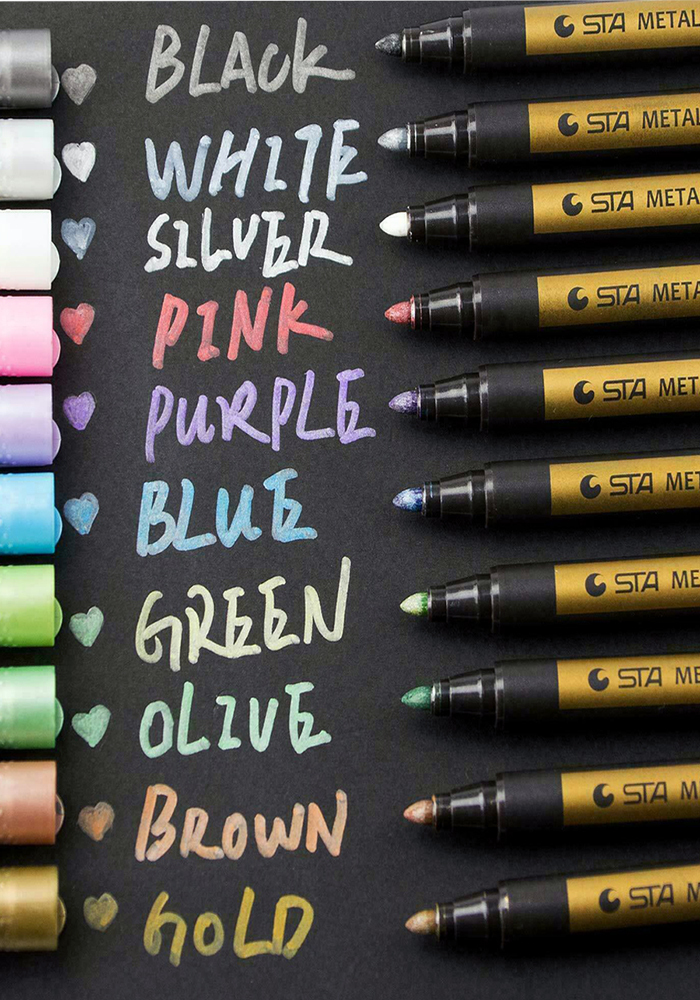 BLACK
STA METAL
WHITE
STA METAL
SILVER
STA META
PINK
STA META
PURPLE
STA MET
BLUE
STA MET
GREEN
STA ME
OLIVE
STA ME
BROWN
STA M
GOLD
STA M